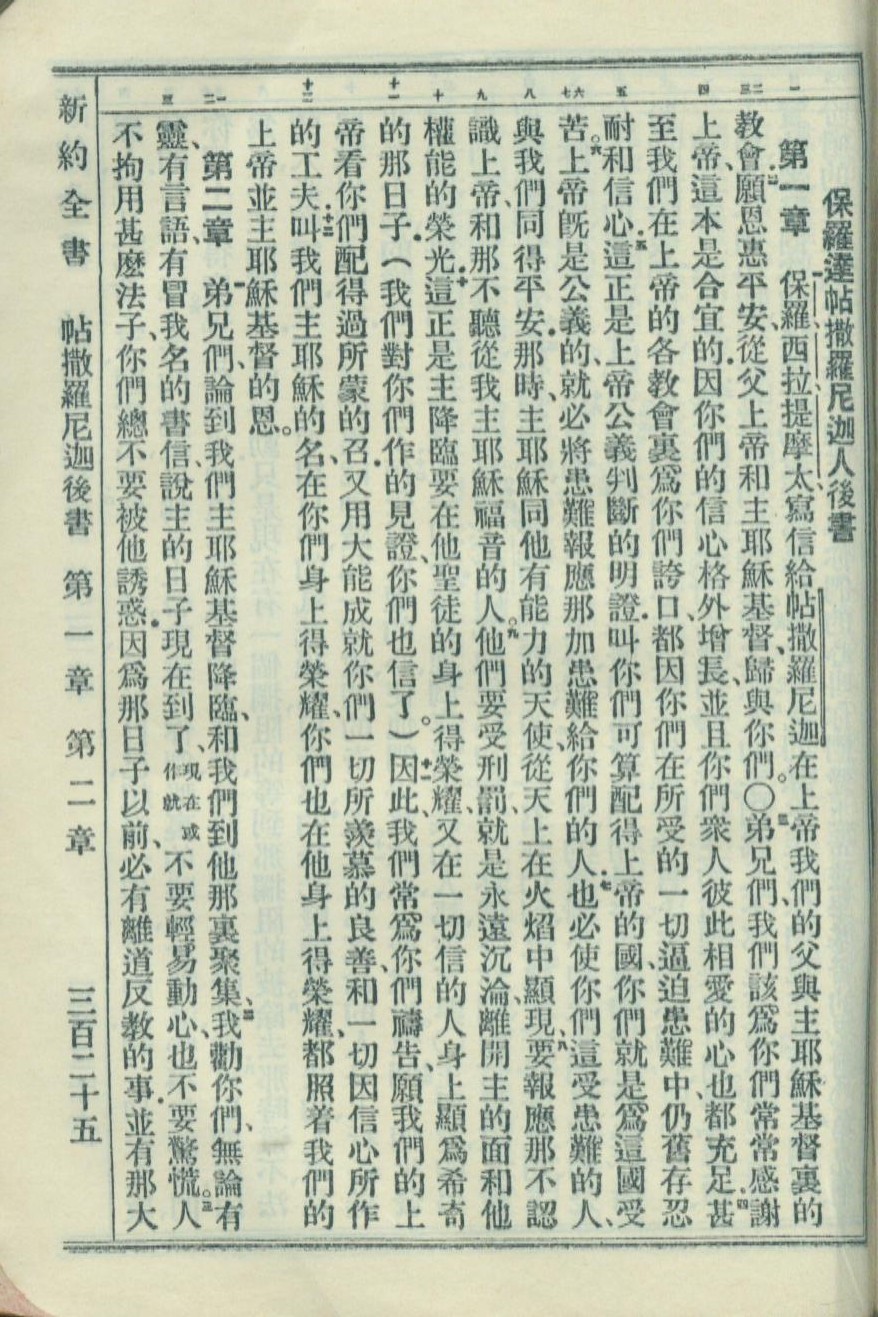 一
二三
四
五
六七
八
九
十
十一
十二
一二
三
保羅達帖撒羅尼迦人後書
第一章 一保羅、西拉、提摩太、寫信給帖撒羅尼迦在上帝我們的父與主耶穌基督裏的
教會、二願恩惠平安、從父上帝和主耶穌基督、歸與你們。〇三弟兄們、我們該爲你們常常感謝
上帝、這本是合宜的、因你們的信心格外增長、並且你們衆人彼此相愛的心也都充足、四甚
至我們在上帝的各教會裏爲你們誇口、都因你們在所受的一切逼迫患難中、仍舊存忍
耐和信心、五這正是上帝公義判斷的明證、叫你們可算配得上帝的國、你們就是爲這國受
苦。六上帝旣是公義的、就必將患難報應那加患難給你們的人、七也必使你們這受患難的人、
與我們同得平安、那時、主耶穌同他有能力的天使、從天上在火焰中顯現、八要報應那不認
識上帝、和那不聽從我主耶穌福音的人。九他們要受刑罰、就是永遠沉淪、離開主的面和他
權能的榮光、十這正是主降臨要在他聖徒的身上得榮耀、又在一切信的人身上顯爲希奇
的那日子、（我們對你們作的見證、你們也信了）。十一因此、我們常爲你們禱告、願我們的上
帝看你們配得過所蒙的召、又用大能成就你們一切所羨慕的良善、和一切因信心所作
的工夫、十二叫我們主耶穌的名、在你們身上得榮耀、你們也在他身上得榮耀、都照着我們的
上帝並主耶穌基督的恩。
第二章 一弟兄們、論到我們主耶穌基督降臨、和我們到他那裏聚集、二我勸你們、無論有
靈、有言語、有冒我名的書信、說主的日子現在到了、現在或作就不要輕易動心、也不要驚慌。三人
不拘用甚麽法子、你們總不要被他誘惑、因爲那日子以前、必有離道反教的事、並有那大
新約全書 帖撒羅尼迦後書 第一章 第二章 三百二十五